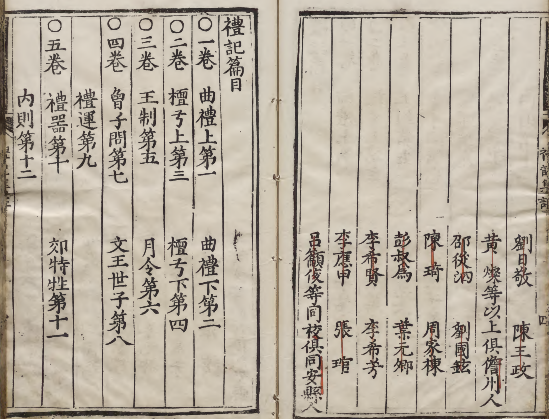 劉日敬 陳王政
黃 燦等以上俱儋州人
邵俊 劉國鉉
陳 琦 周家棟
彭叔為 葉元卿
李希賢 李希芳
李應申 張 琯
呂顯俊等間校俱同安縣人
禮記篇目
○一卷 曲禮上第一 曲禮下第二
○二卷 檀弓上第三 檀弓下第四
○三卷 王制第五 月令第六
○四卷 曾子問第七 文王世子第八
禮運第九
○五卷 禮器第十 郊特牲第十一
內則第十二